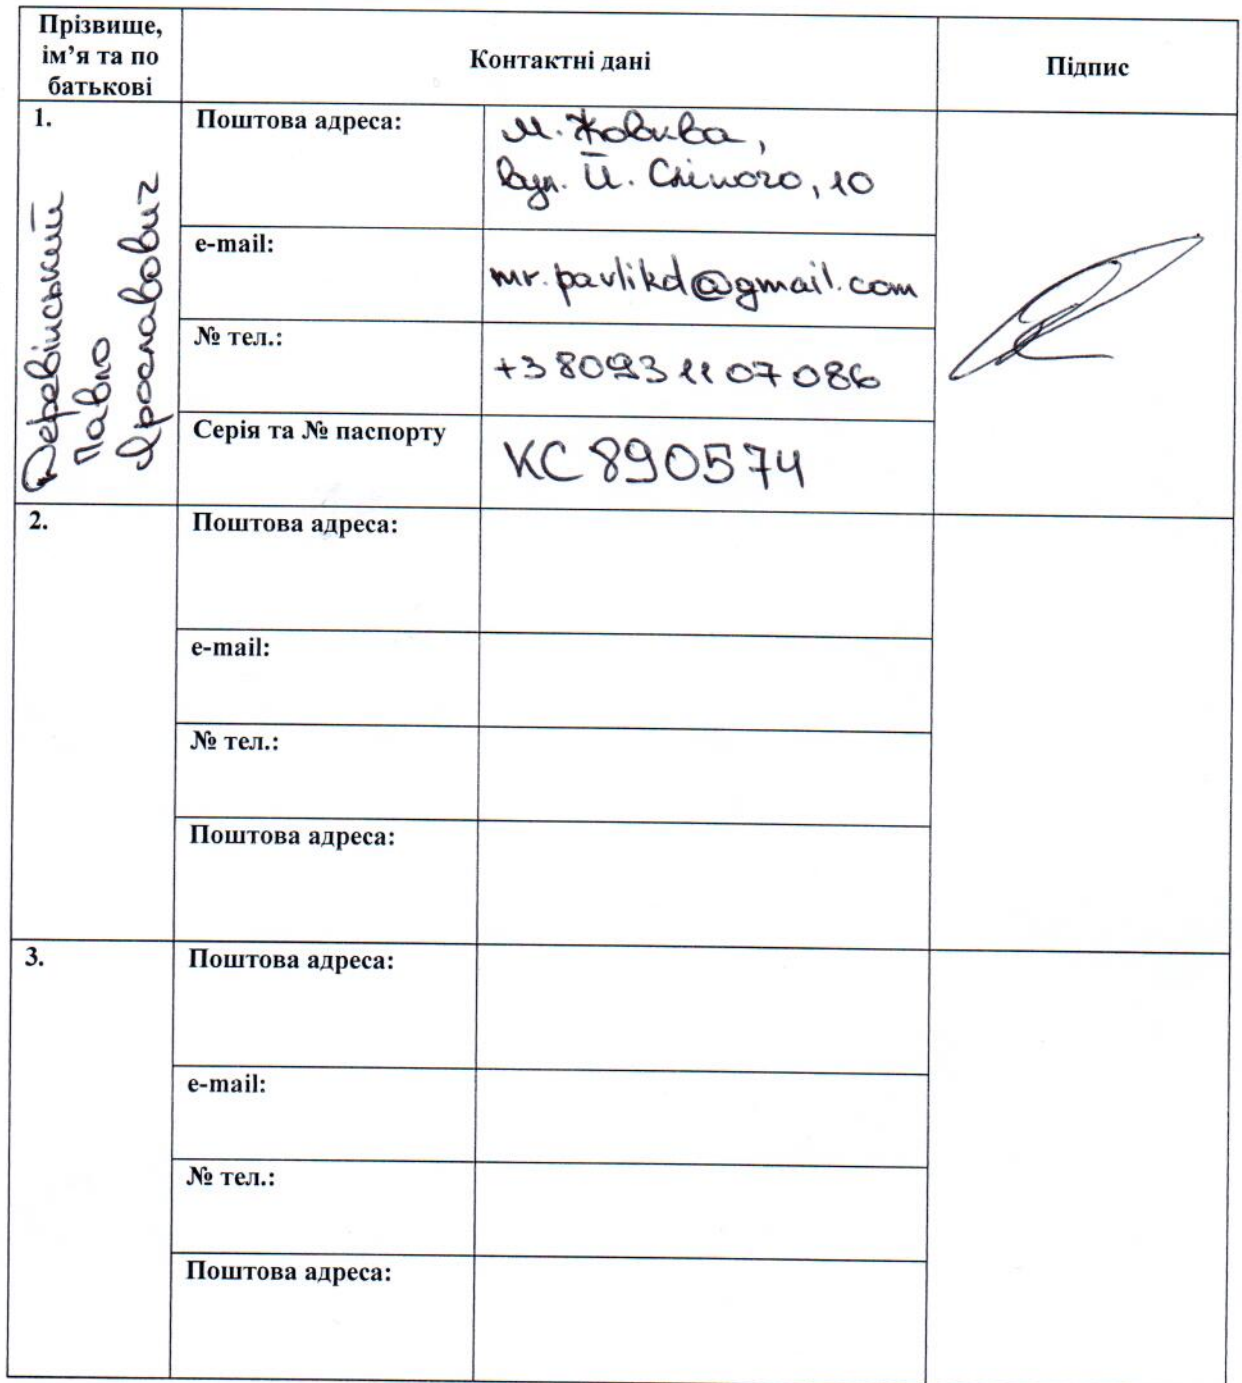 Прізвище,
ім’я та по
батькові
Контактні дані
Підпис
1.
Деревінський
Павло
Ярославович
Поштова адреса:
м. Жовква,
вул. Й. Сліпого, 10
e-mail:
mr.pavlikd@gmail.com
№ тел.:
+380931107086
Серія та № паспорту
КС 890574
2.
Поштова адреса:
e-mail:
№ тел.:
Поштова адреса:
3.
Поштова адреса:
e-mail:
№ тел.:
Поштова адреса: